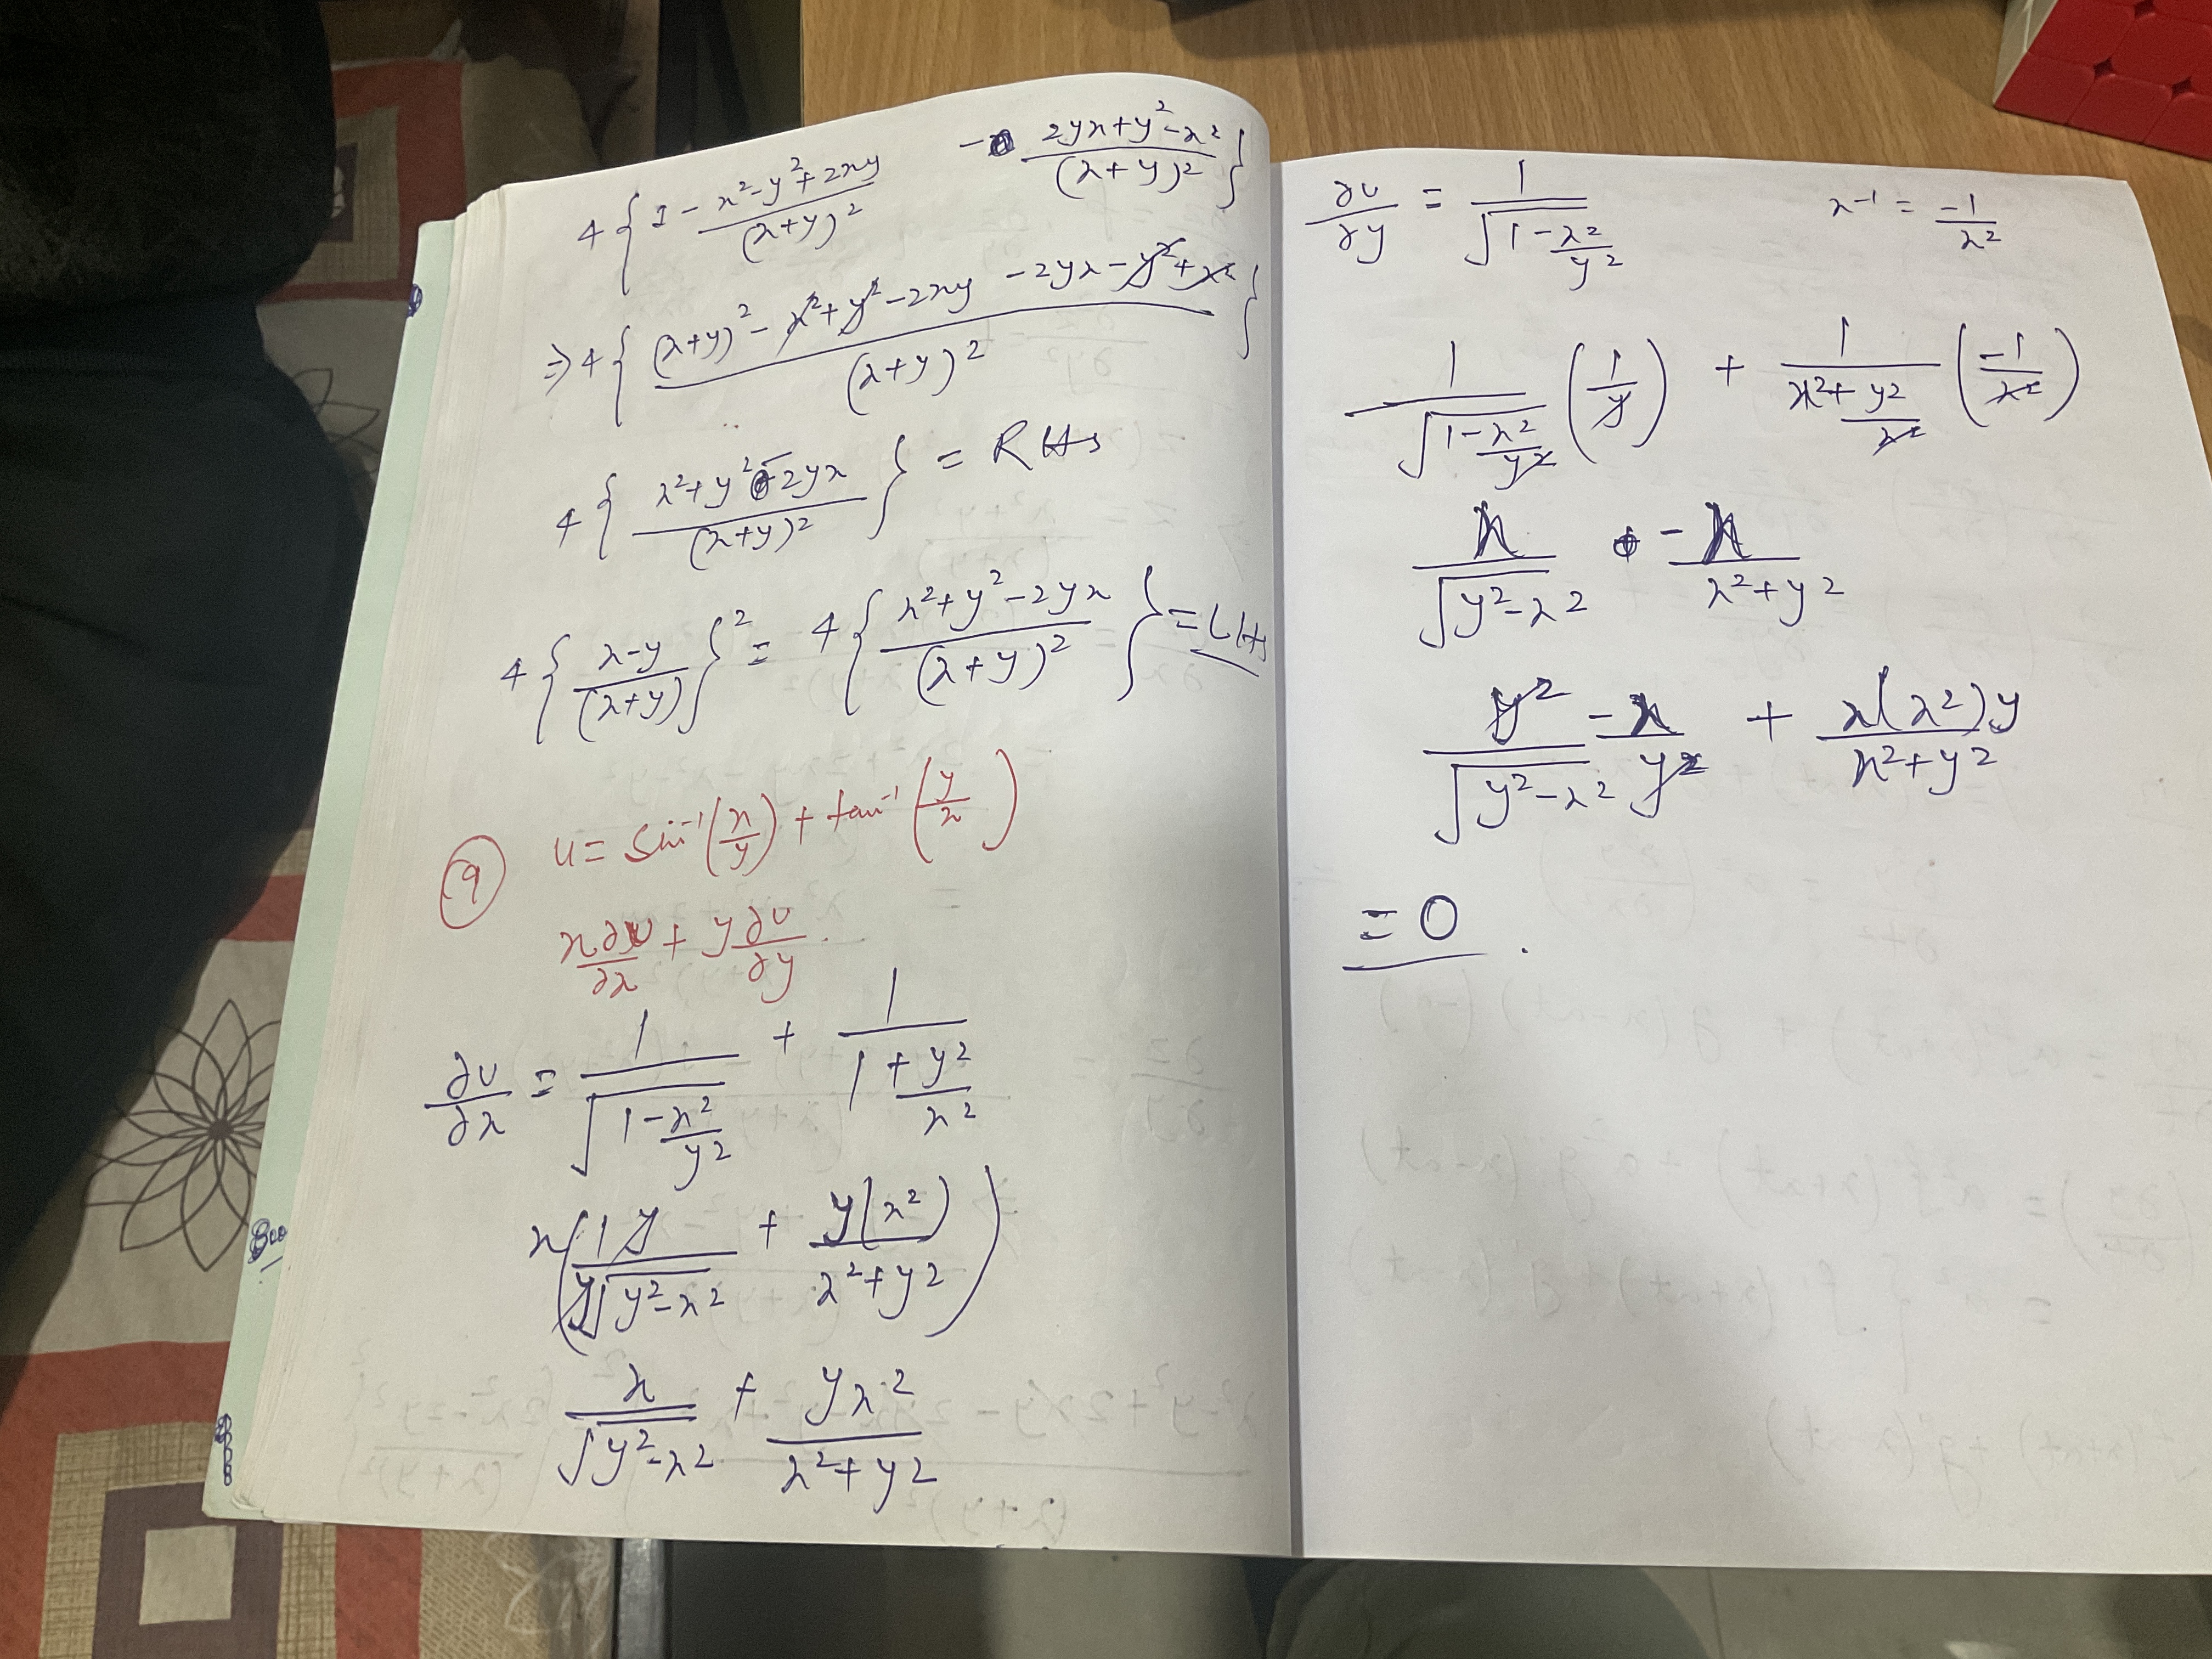 4 { 1 - (x² - y² + 2xy)/(x+y)² - (2yx + y² - x²)/(x+y)² }
⇒ 4 { ((x+y)² - x² + y² - 2xy - 2yx - y² + x²)/(x+y)² }
4 { (x² + y² - 2yx)/(x+y)² } = RHS
4 { (x-y)/(x+y) }² = 4 { (x² + y² - 2yx)/(x+y)² } = LHS
(9) u = sin⁻¹(x/y) + tan⁻¹(y/x)
x ∂u/∂x + y ∂u/∂y
∂u/∂x = 1/√(1 - x²/y²) + 1/(1 + y²/x²)
x( 1y/(y√(y²-x²)) + y(x²)/(x²+y²) )
x/√(y²-x²) + yx²/(x²+y²)
∂u/∂y = 1/√(1 - x²/y²) x⁻¹ = -1/x²
1/√(1 - x²/y²) (1/y) + 1/(x² + y²/x²) (-1/x²)
x/√(y²-x²) - x/(x²+y²)
y²/√(y²-x²) -x/y² + x(x²)y/(x²+y²)
= 0 .